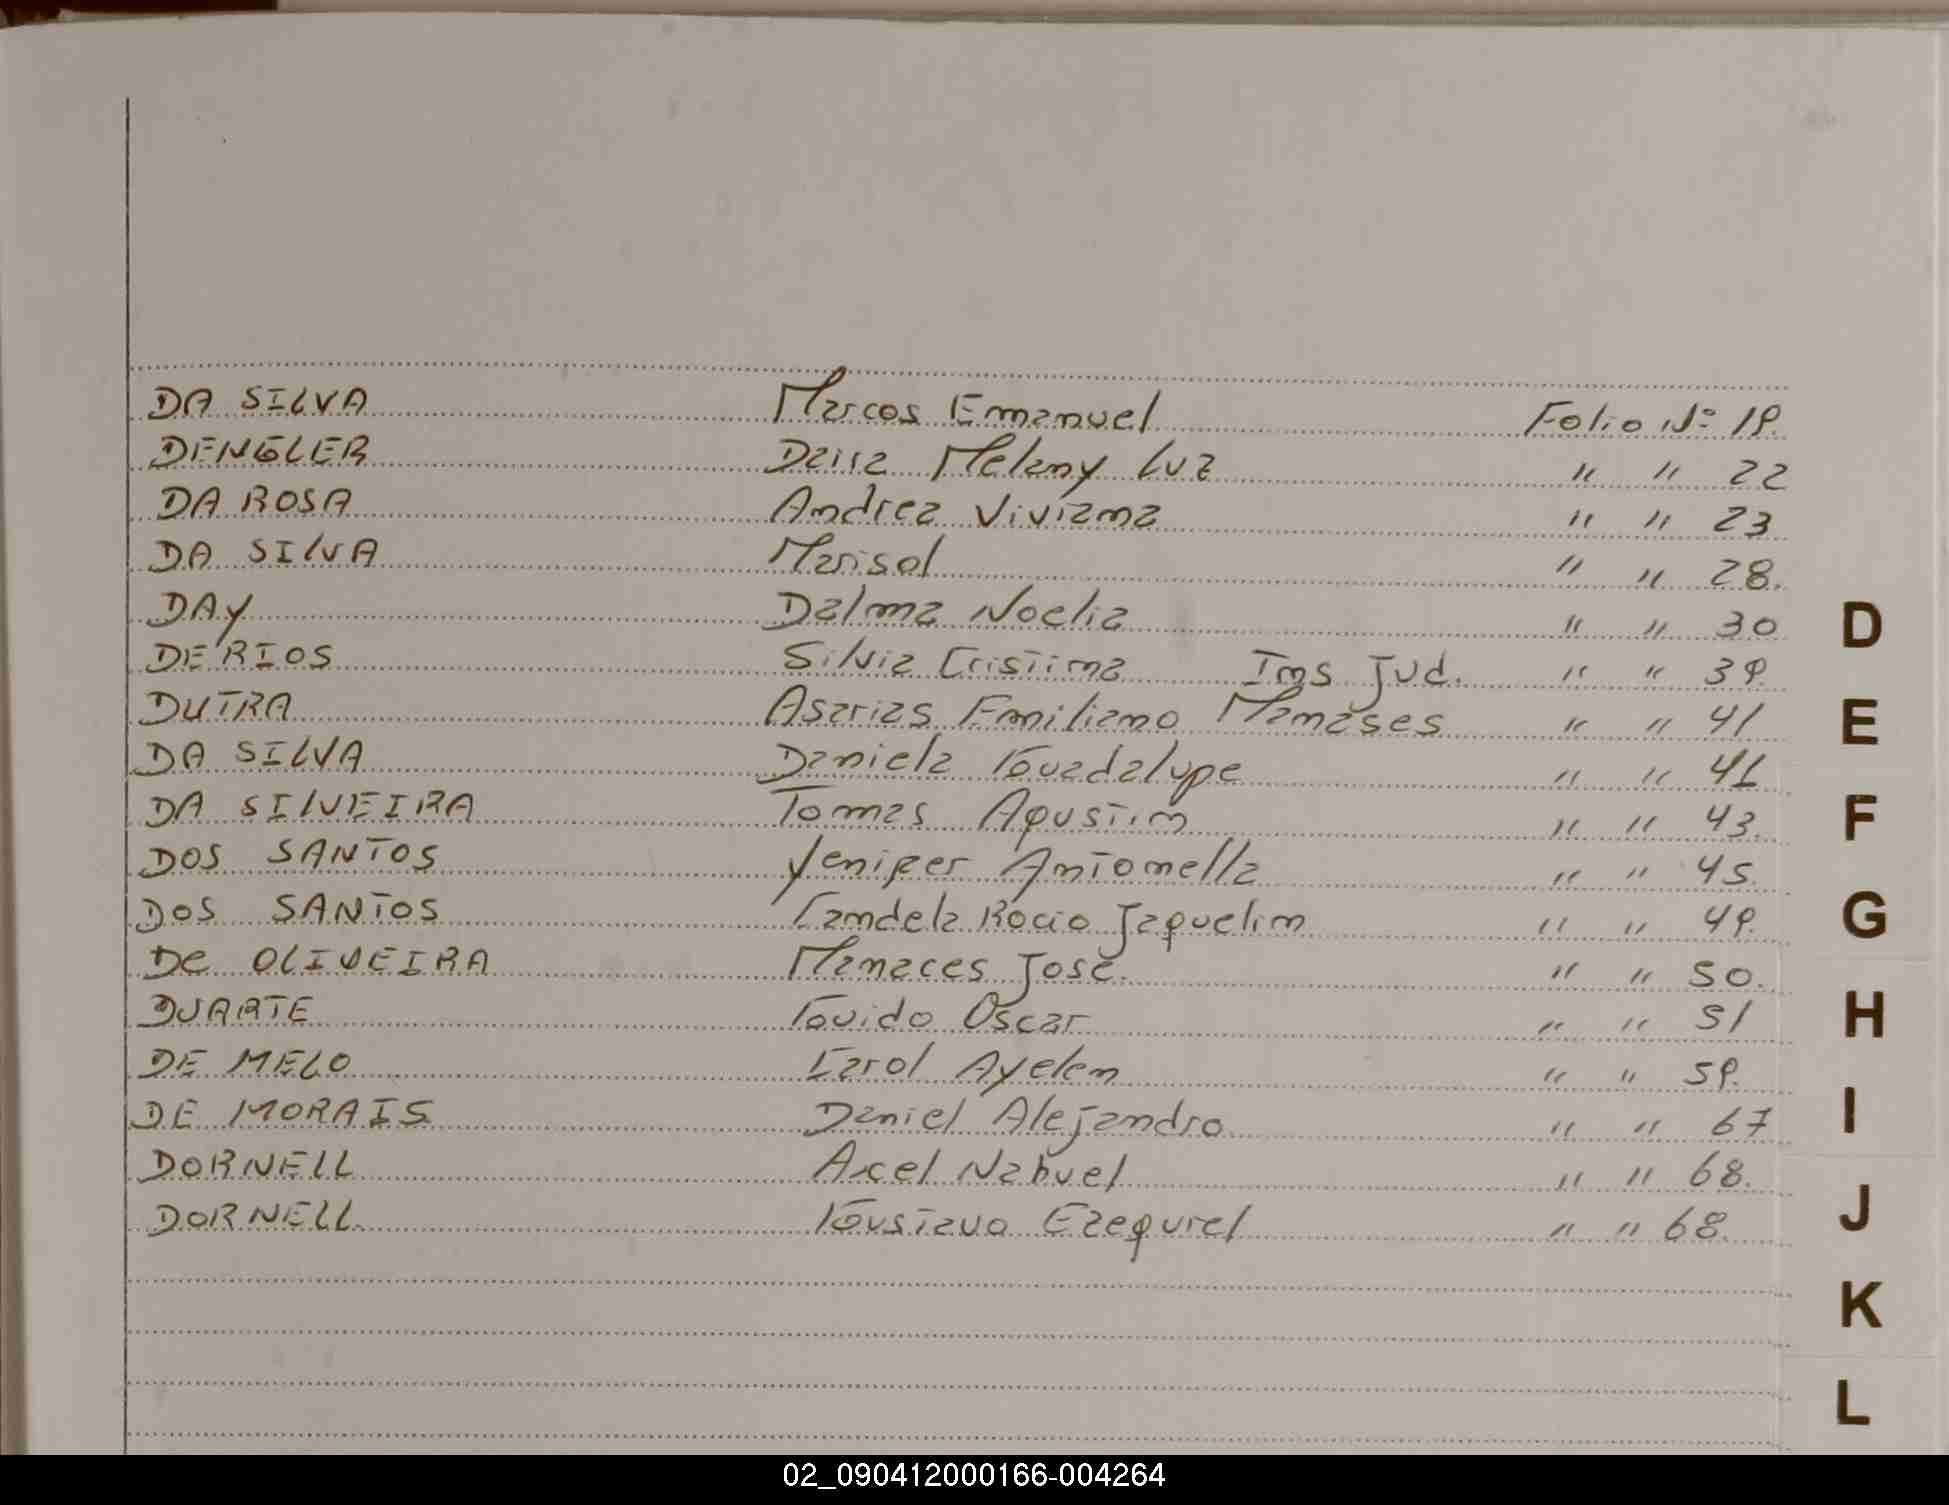 DA SILVA Marcos Emanuel Folio Nº 19.
DENGLER Daira Melany Luz " " 22
DA ROSA Andrea Viviana " " 23
DA SILVA Marisol " " 28.
DAY Dalma Noelia " " 30
DE RIOS Silvia Cristina Ins Jud. " " 39
DUTRA Asarias Emiliano Manases " " 41
DA SILVA Daniela Guadalupe " " 41
DA SILVEIRA Tomas Agustin " " 43.
DOS SANTOS Yenifer Antonella " " 45.
DOS SANTOS Candela Rocio Jaquelin " " 49.
De OLIVEIRA Manaces José. " " 50.
DUARTE Guido Oscar " " 51
DE MELO Carol Ayelen " " 59.
DE MORAIS Daniel Alejandro " " 67
DORNELL Axel Nahuel " " 68.
DORNELL Gustavo Ezequiel " " 68.
D
E
F
G
H
I
J
K
L
02_090412000166-004264